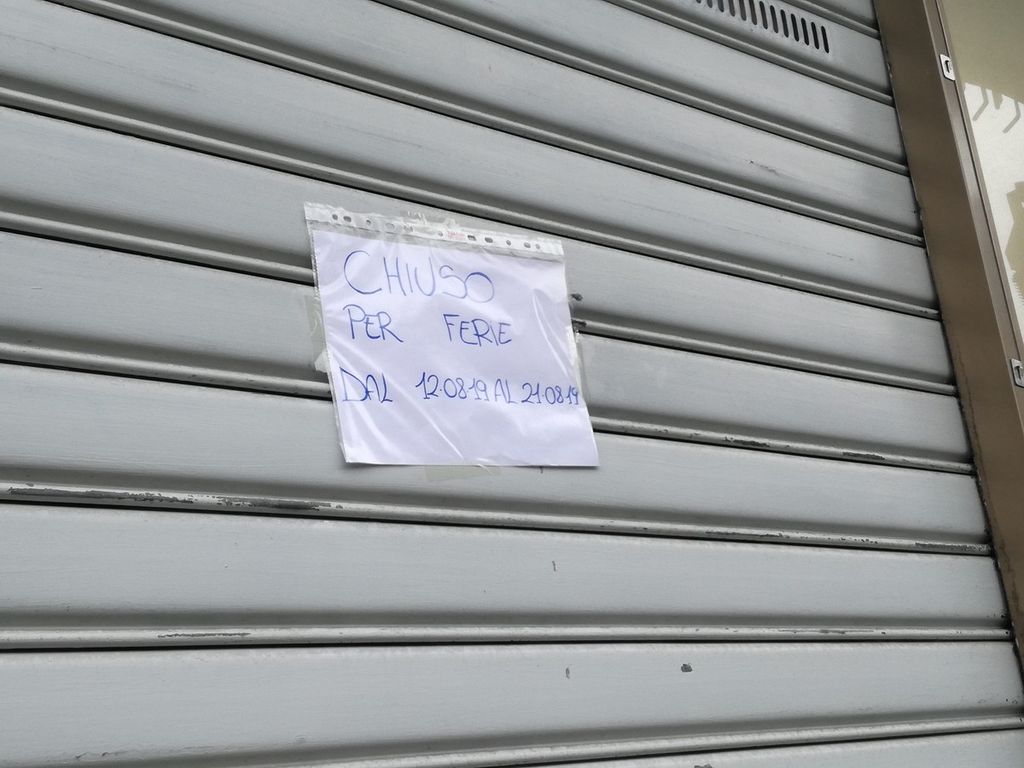 CHIUSO
PER FERIE
DAL 12.08.19 AL 21.08.19